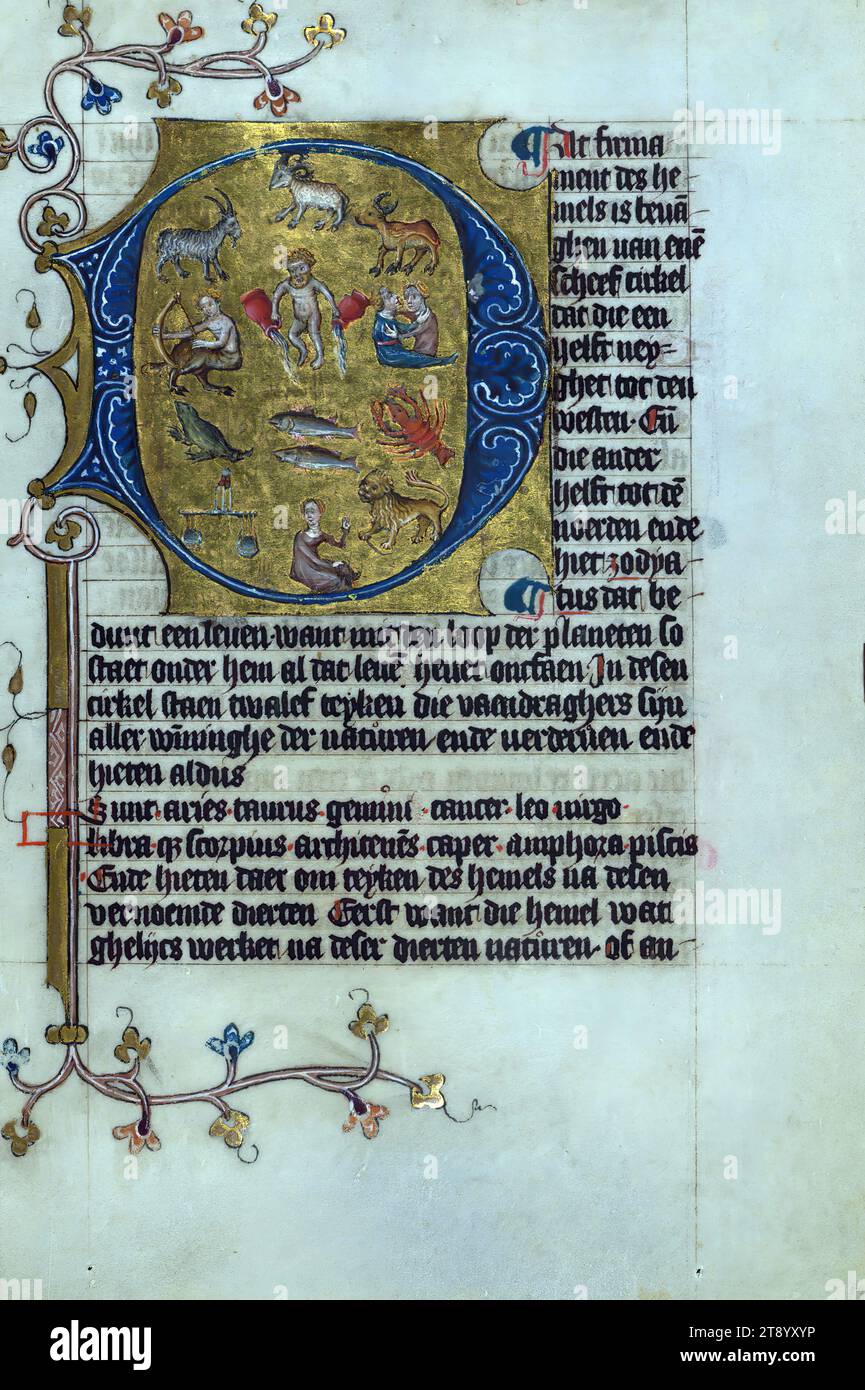 Dat firma
ment des he
mels is bevā
ghen van enē
scheef cirkel
dat die een
helft ney=
ghet tot den
westen. Eñ
die ander
helft tot dē
noerden ende
hiet zodya
cus dat be
duut een leven. want mitten loop der planeten so
staet onder hem al dat levē hevet ontfaen. In desen
cirkel staen twalef teyken die vaendraghers sijn
aller wīninghe der naturen ende verderven ende
hieten aldus
Sunt. aries. taurus. gemini. cancer. leo. virgo.
libra. qz scorpius. architenēs. caper. amphora. piscis
Ende hieten daer om teyken des hemels na desen
vernoemde dierten Eerst want die hemel wat
ghelijcs werket na deser dierten naturen. of an-
a
alamy
a
alamy
Image ID: 2T8YXYP
www.alamy.com